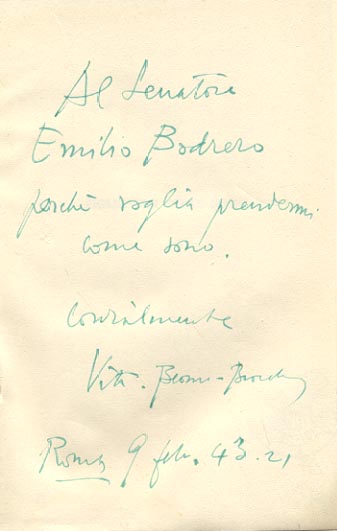 Al Senatore
Emilio Bodrero
perchè voglia prendermi
come sono.
Cordialmente
Vitt. Beonio-Brocchieri
Roma 9 feb. 43. 21